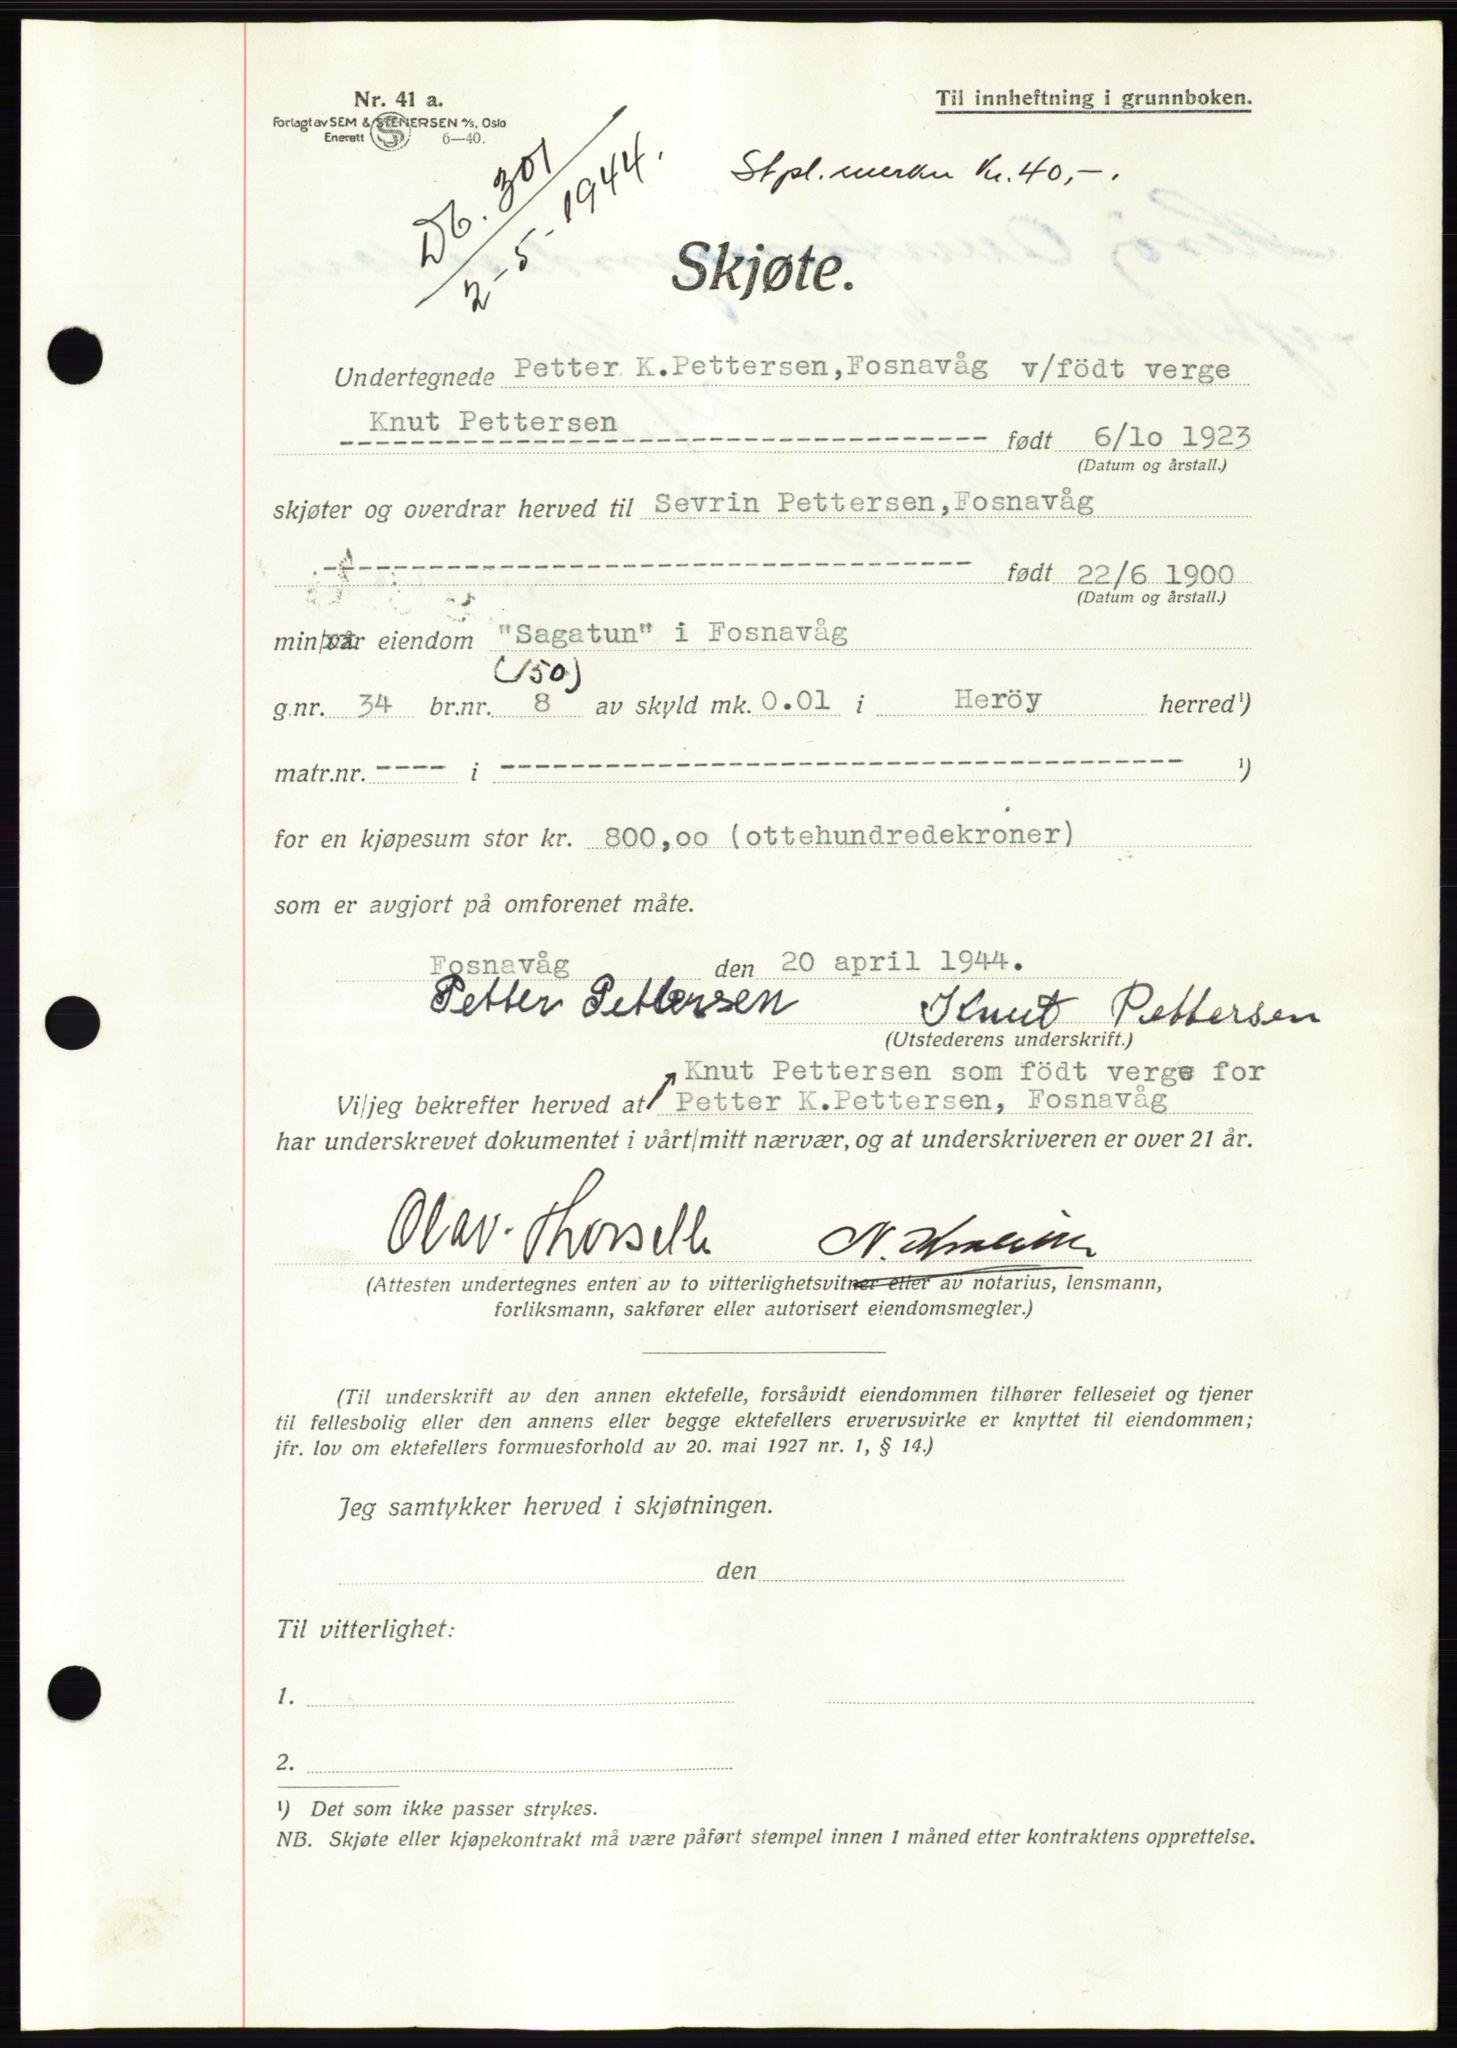 Nr. 41 a.
Forlagt av SEM & STENERSEN A/S, Oslo
Enerett S 6—40.
Til innheftning i grunnboken.
Db. 301
2-5-1944.
Stpl.merke Kr. 40,-.
Skjøte.
Undertegnede Petter K.Pettersen,Fosnavåg v/födt verge
Knut Pettersen
født 6/1o 1923
(Datum og årstall.)
skjøter og overdrar herved til Sevrin Pettersen,Fosnavåg
født 22/6 1900
(Datum og årstall.)
min/vår eiendom "Sagatun" i Fosnavåg
(150)
g.nr. 34 br.nr. 8 av skyld mk. 0.01 i Heröy herred¹)
matr.nr. ---- i --------------------------------------- ¹)
for en kjøpesum stor kr. 800,oo (ottehundredekroner)
som er avgjort på omforenet måte.
Fosnavåg den 20 april 1944.
Petter Pettersen Knut Pettersen
(Utstederens underskrift.)
Knut Pettersen som födt verge for
Vi/jeg bekrefter herved at Petter K.Pettersen, Fosnavåg
har underskrevet dokumentet i vårt/mitt nærvær, og at underskriveren er over 21 år.
Olav N.
(Attesten undertegnes enten av to vitterlighetsvitner eller av notarius, lensmann,
forliksmann, sakfører eller autorisert eiendomsmegler.)
(Til underskrift av den annen ektefelle, forsåvidt eiendommen tilhører felleseiet og tjener
til fellesbolig eller den annens eller begge ektefellers ervervsvirke er knyttet til eiendommen;
jfr. lov om ektefellers formuesforhold av 20. mai 1927 nr. 1, § 14.)
Jeg samtykker herved i skjøtningen.
den
Til vitterlighet:
1.
2.
¹) Det som ikke passer strykes.
NB. Skjøte eller kjøpekontrakt må være påført stempel innen 1 måned etter kontraktens opprettelse.